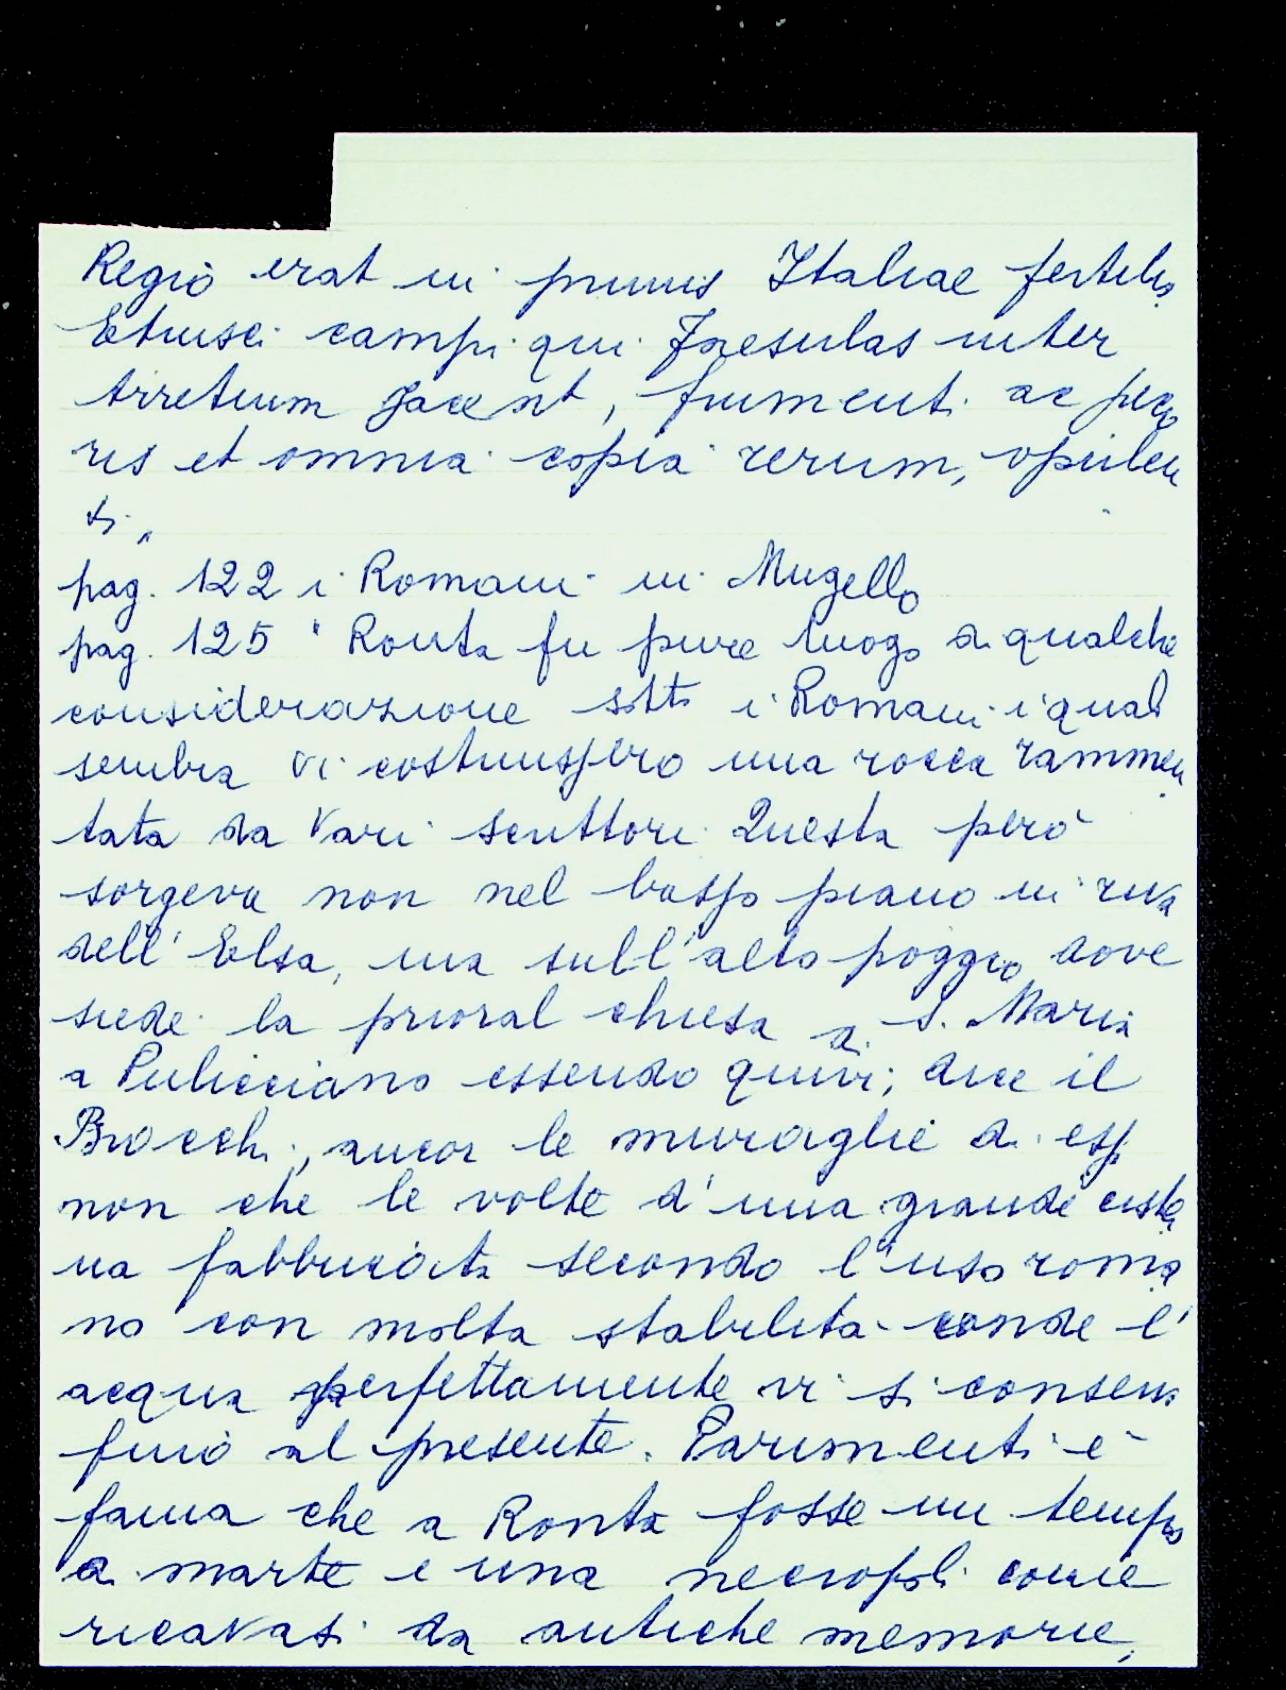 Regio erat in primis Italiae fertilis
Etrusci campi qui Faesulas inter
Arretium jacent, frumenti ac peco
ris et omnia copia rerum, opulen
ti„
pag. 122 i Romani in Mugello
pag. 125 " Ronta fu pure luogo di qualche
considerazione sotto i Romani i quali
sembra vi costruissero una rocca rammen
tata da vari scrittori Questa però
sorgeva non nel basso piano in riva
dell'Elsa, ma sull'alto poggio dove
siede la prioral chiesa di S. Maria
a Pulicciano essendo quivi, dice il
Brocchi, ancor le muraglie di essa
non che le volte d'una grande cister
na fabbricata secondo l'uso roma
no con molta stabilità onde l'
acqua perfettamente vi si conserva
fino al presente. Parimenti è
fama che a Ronta fosse un tempio
a marte e una necropoli come
ricavasi da antiche memorie,